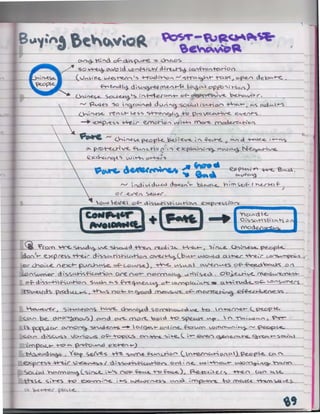 Buying Behavior POST-PURCHASE
BEHAVIOR
any kind of dispute = chaos
so they avoid conflict/ directly confrontation
(unlike western's tradition ~ straight talk, open debate,
friendly disagreement & loyal opposition)
Chinese people
Chinese Society's intolerant of
behavior.
~ Rules so ingrained during socialisation that, as adults
Chinese react less strongly to provocative events
→ express their emotion with more moderation
Fate ~ Chinese people believe in fate, and
a protective function in explaining away Negative
exchanges with others
Fate determines Good & Bad
explain the Bad
away
~ individual doesn't blame himself/herself
or even seller
low level of dissatisfaction expression
CONFLICT AVOIDANCE + Fate → Handle
Dissatisfaction
moderately
From the study we should then realize that, since Chinese people
don't express their dissatisfaction overtly (but would alter their
or choice next purchase of course), the usual avenues of feedback on
consumer dissatisfaction are not normally utilised. Objective measurement
of dissatisfaction such as frequency of complaints & attitude of consumers
towards product, thus not a good measure of marketing effectiveness.
However, situations have changed somewhat due to internet (people
can be anonymous) and are more
to speak up. In Taiwan, PTT
is popular among students → largest online forum community ~ People
can discuss various of topics on the site (it even generates great social
impact to a profound extent)
Nowadays, Yelp serves the same function (international) People can
express their views / dissatisfaction online without worrying harm
Social harmony (since it's not face to face). Retailers then can use
these sites to examine its weakness and improve to make themselves
a better place.
89